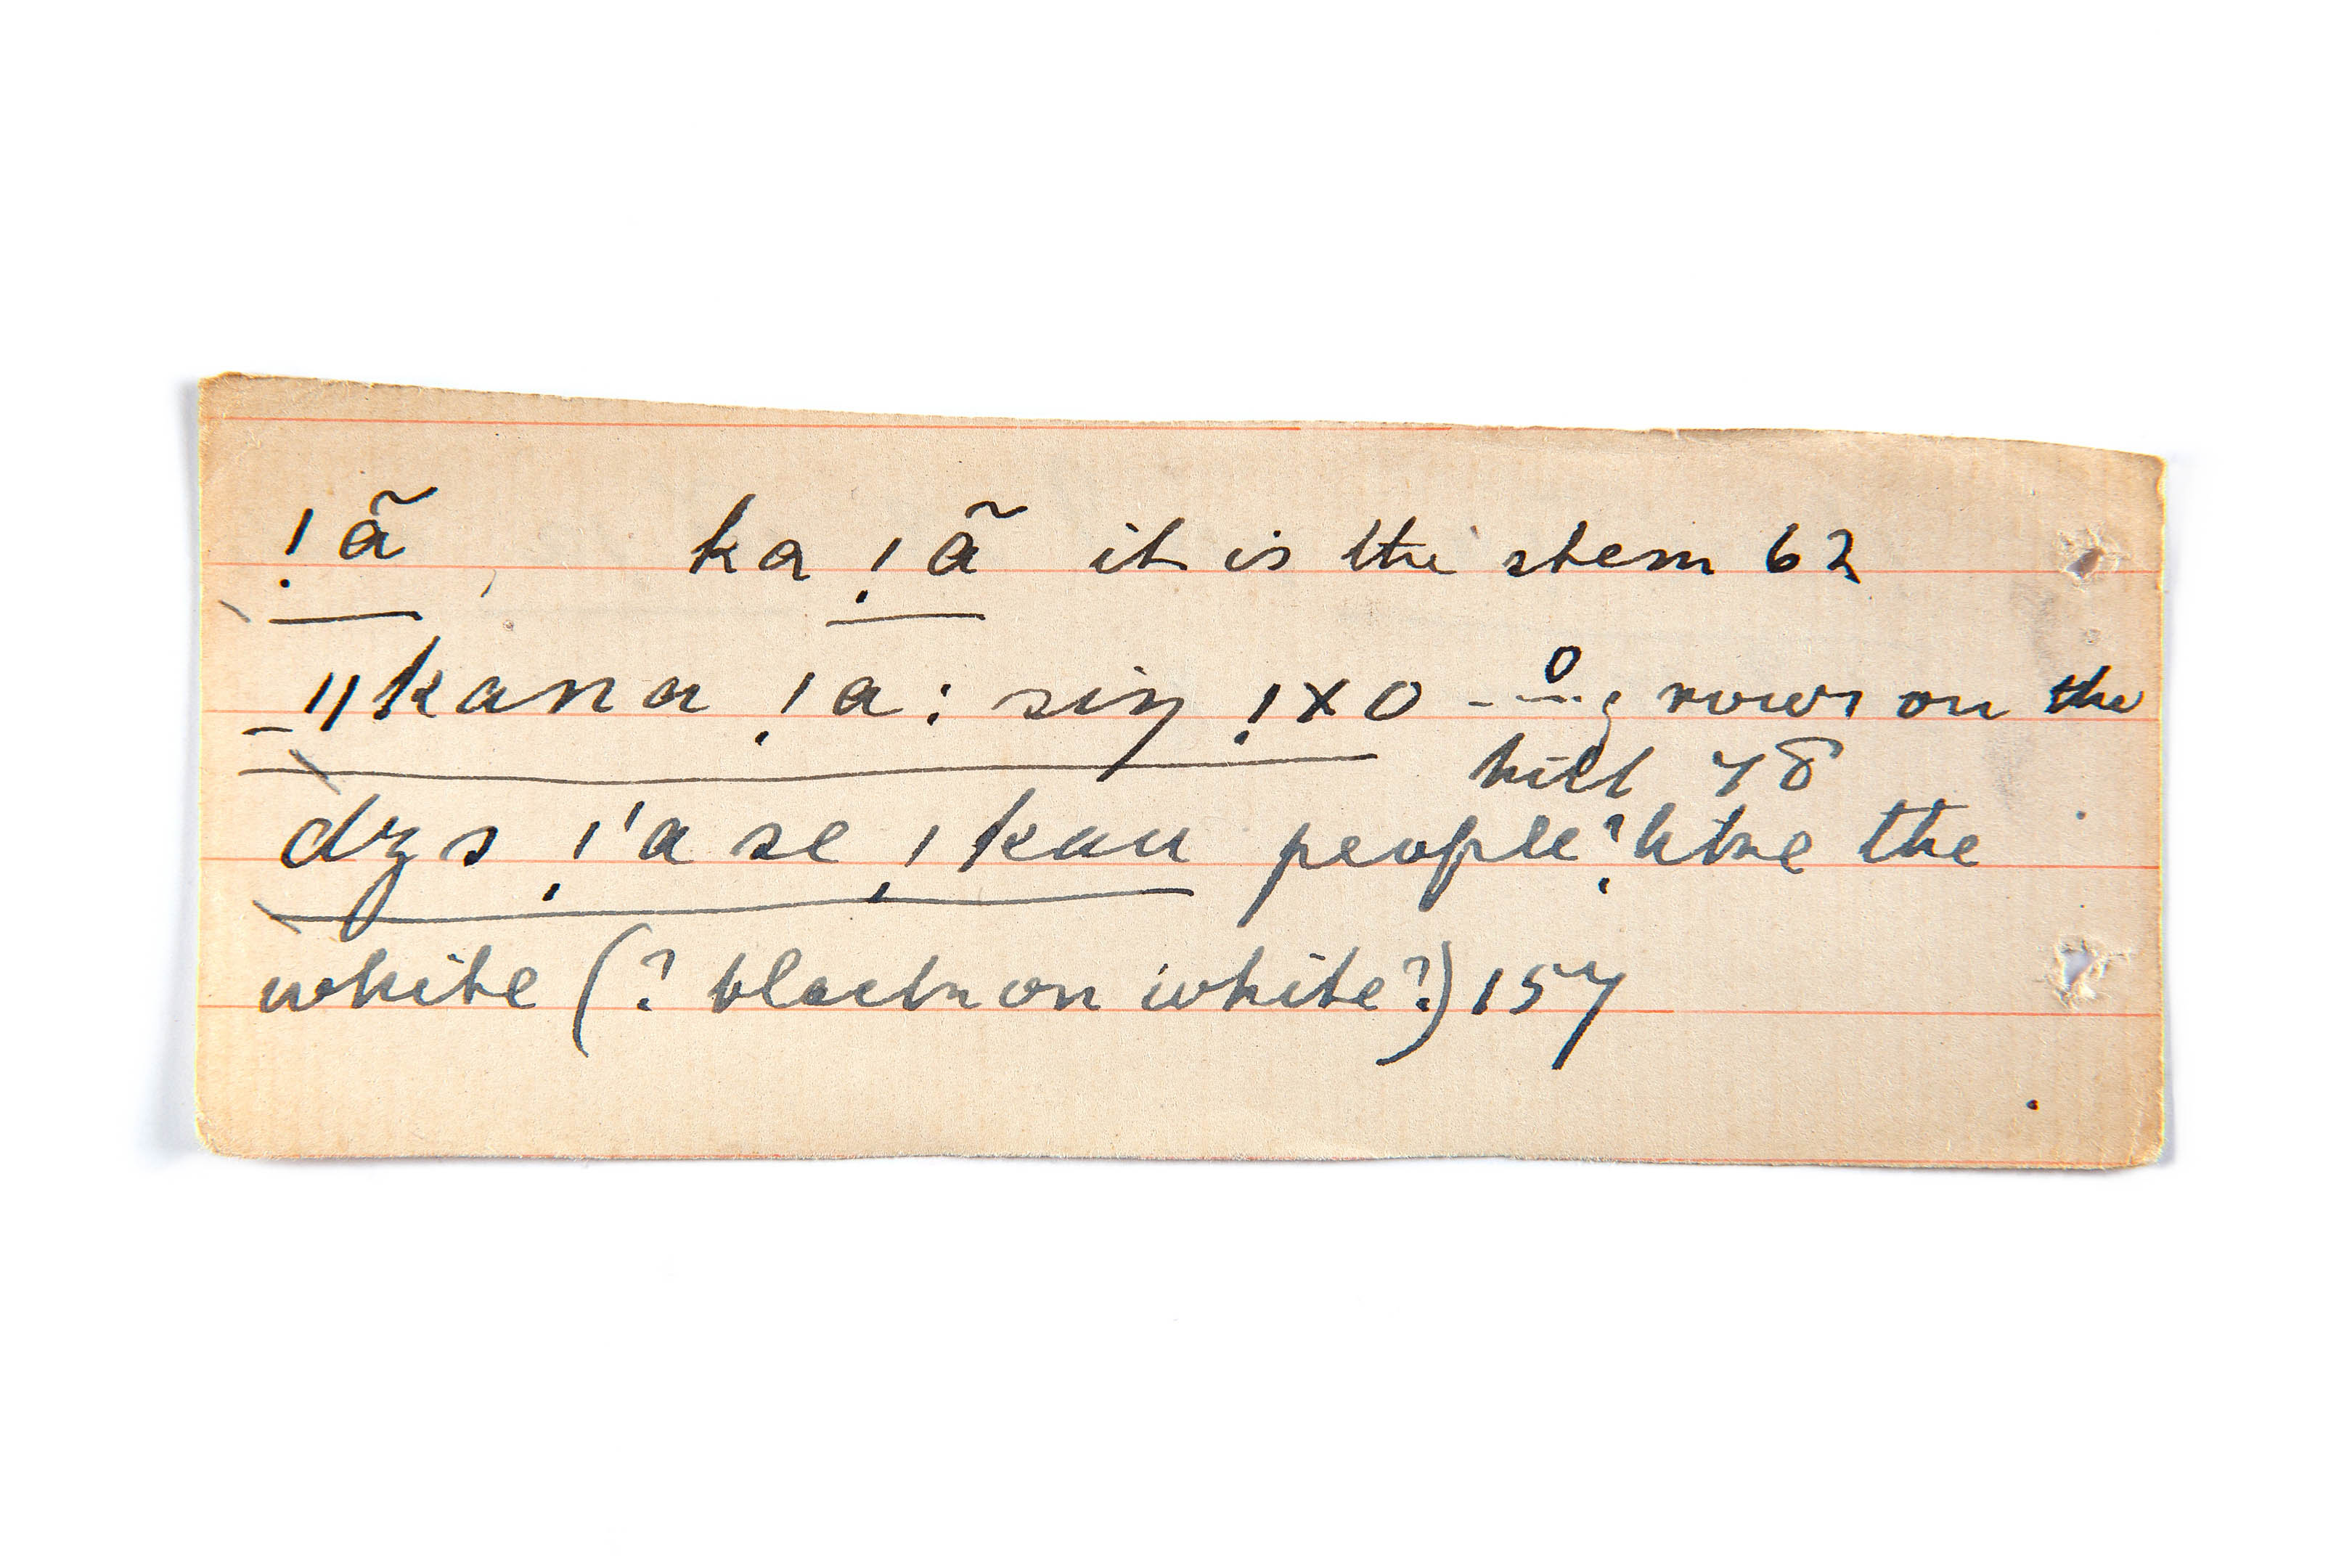 !ã ka !ã it is the stem 62
ǁkana !a: siŋ !xo - grows on the
hill 78
dzs !'a se !kau people? like the
white (? black on white?) 157